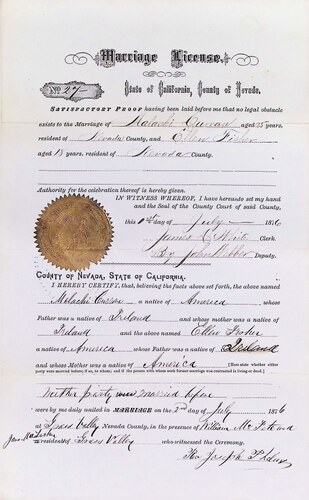 Marriage License.
No. 27
State of California, County of Nevada.
SATISFACTORY PROOF having been laid before me that no legal obstacle
exists to the Marriage of Malachi Curran aged 25 years,
resident of Nevada County, and Ellen Fisher
aged 18 years, resident of Nevada County.
Authority for the celebration thereof is hereby given.
IN WITNESS WHEREOF, I have hereunto set my hand
and the Seal of the County Court of said County,
this 1st day of July 1876
James Clerk.
By John Webber Deputy.
COUNTY OF NEVADA, STATE OF CALIFORNIA.
I HEREBY CERTIFY, that, believing the facts above set forth, the above named
Malachi Curran a native of America whose
Father was a native of Ireland and whose mother was a native of
Ireland and the above named Ellen
a native of America whose Father was a native of Ireland
and whose Mother was a native of America (Here state whether either
party were married before, if so, by whom; and if the person with whom such former marriage was contracted is living or dead.)
neither party was married before
were by me duly united in MARRIAGE on the 2nd day of July 1876
at Grass Valley Nevada County, in the presence of William
residents of Grass Valley who witnessed the Ceremony.
Rev Joseph